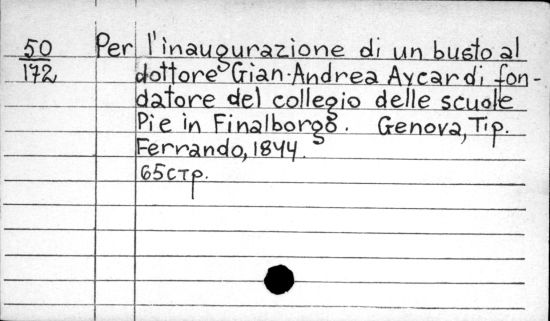 50 Per l'inaugurazione di un busto al
172 dottore Gian-Andrea Aycardi fon-
datore del collegio delle scuole
Pie in Finalborgo. Genova, Tip.
Ferrando, 1844.
65стр.